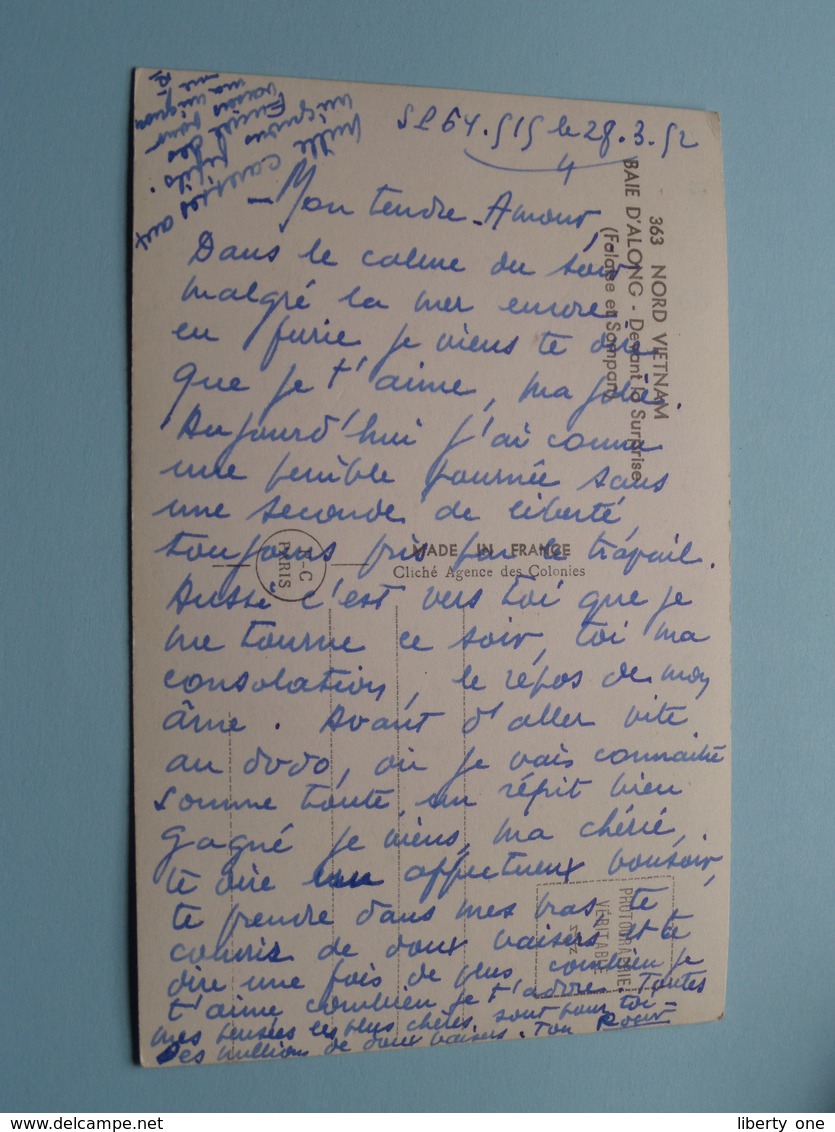 SP 64.515 le 28.3.52
4
- Mon tendre Amour,
Dans le calme du soir
malgré la mer encore
en furie je viens te dire
que je t'aime, ma jolie.
Aujourd'hui j'ai connu
une pénible journée sans
une seconde de liberté,
toujours pris par le travail.
Aussi c'est vers toi que je
me tourne ce soir, toi ma
consolation, le répos de mon
âme. Avant d'aller vite
au dodo, où je vais connaitre
somme toute, un répit bien
gagné je viens, ma chérie,
te dire un affectueux bonsoir,
te prendre dans mes bras te
couvrir de doux baisers et te
dire une fois de plus combien je
t'aime combien je t'adore. Toutes
mes pensées les plus chères sont pour toi
Des millions de doux baisers. Ton Roger
mille caresses aux
petits.
des
pour
ma mignonne
363 NORD VIETNAM
BAIE D'ALONG - Devant la Surprise
(Falaise et Sampan)
MADE IN FRANCE
Cliché Agence des Colonies
PARIS
PHOTOGRAPHIE
VÉRITABLE
liberty one